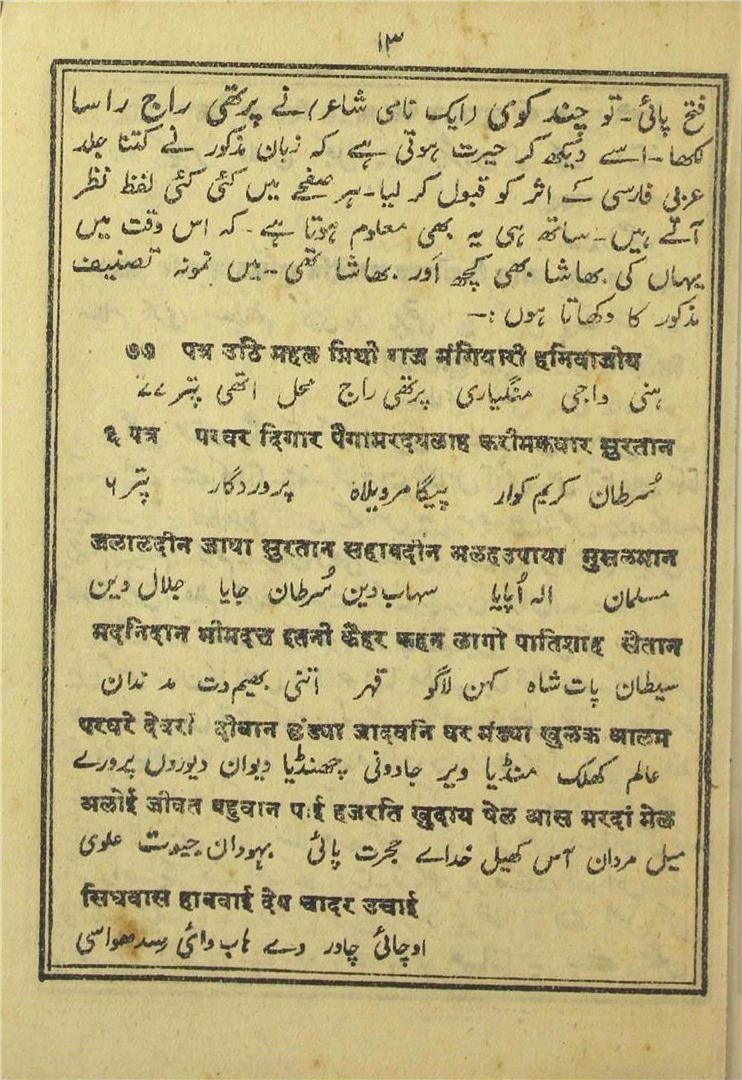 ۱۳
فتح پائی۔ تو چند کوی (ایک نامی شاعر) نے پرتھی راج راسا
لکھا۔ اسے دیکھ کر حیرت ہوتی ہے کہ زبان مذکور نے کتنا جلد
عربی فارسی کے اثر کو قبول کر لیا۔ ہر صفحے میں کئی کئی لفظ نظر
آتے ہیں۔ ساتھ ہی یہ بھی معلوم ہوتا ہے۔ کہ اس وقت میں
یہاں کی بھاشا بھی کچھ اَور بھاشا تھی۔ میں نمونہ تصنیف
مذکور کا دکھاتا ہوں :۔
७७ पत्र उठि महल प्रिथी राज मंगियारी हमिवाजीय
ہنی واجی منگیاری پرتھی راج محل اتھی پتر ۷۷
६ पत्र परवर दिगार पैगामरदयलाह करीमकवार सुरतान
سُرطان کریم کوار پیگامرویلاہ پروردگار پتر ۶
जलालदीन जाया सुरतान सहाबदीन अलहउपाया मुसलमान
مسلمان الہ اُپایا سہاب دین سُرطان جایا جلال دین
मदनिदान भीमदत्त इतनी कैहर कहन लागो पातिशाह सैतान
سیطان پات شاہ کہن لاگو قہر اتنی بھیم دت مد ندان
परघरे देवरां दीवान छंड्या जादवनि घर मंड्या खुलक आलम
عالم کھلک منڈیا ویر جادونی چھنڈیا دیوان دیوروں پرورے
अलोई जीवत बहुवान पाई हजरति खुदाय षेल आस मरदां मेल
میل مردان آس کھیل خداے حجرت پائی بہودان جیوت علوی
सिधवास हाबवाई देष चादर उचाई
اوچائی چادر دے ہاب وائی سدھواسی